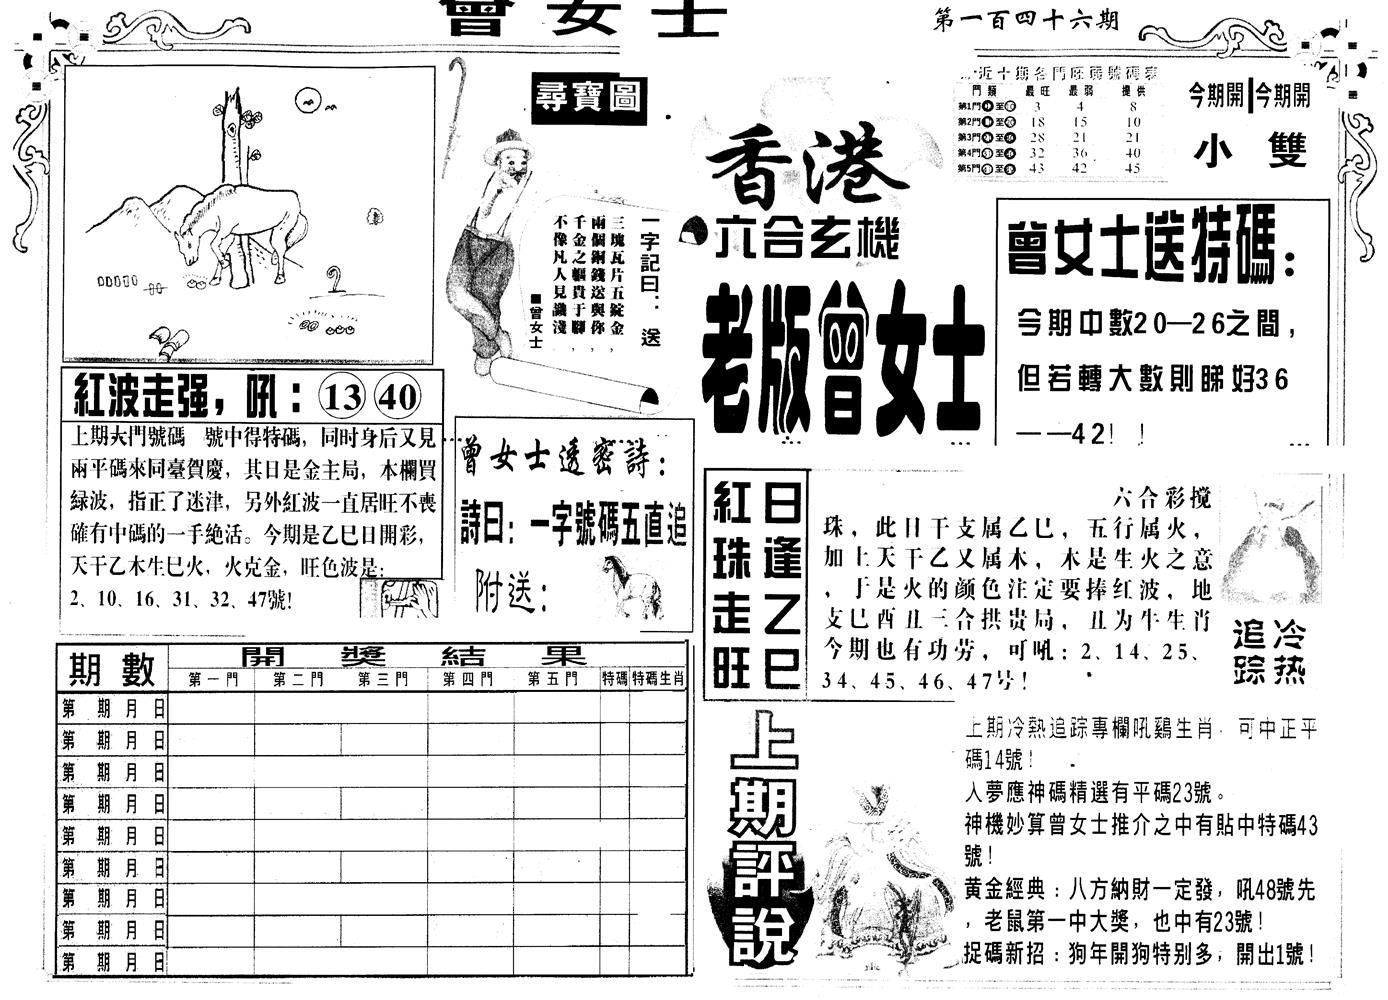 曾女士
第一百四十六期
尋寶圖
一字記曰：送
三塊瓦片五錠金，
兩個銅錢送與你，
千金之軀貴于腳，
不像凡人見識淺
■曾女士
香港
六合玄機
老版曾女士
近十期各門旺弱號碼表
門類 最旺 最弱 提供
第1門 至 3 4 8
第2門 至 18 15 10
第3門 至 28 21 21
第4門 至 32 36 40
第5門 至 43 42 45
今期開 今期開
小 雙
曾女士送特碼：
今期中數20—26之間，
但若轉大數則睇好36
——42！！
紅波走强，吼：13 40
上期大門號碼 號中得特碼，同时身后又見
兩平碼來同臺賀慶，其日是金主局，本欄買
緑波，指正了迷津，另外紅波一直居旺不喪
確有中碼的一手絶活。今期是乙巳日開彩，
天干乙木生巳火，火克金，旺色波是：
2、10、16、31、32、47號!
曾女士透密詩：
詩曰：一字號碼五直追
附送：
紅珠走旺
日逢乙巳
六合彩搅
珠，此日干支属乙巳，五行属火，
加上天干乙又属木，木是生火之意
，于是火的颜色注定要捧红波，地
支巳酉丑三合拱贵局，丑为牛生肖
今期也有功劳，可吼：2、14、25、
34、45、46、47号！
追踪
冷热
期數 開獎結果
第一門 第二門 第三門 第四門 第五門 特碼 特碼生肖
第 期 月 日
第 期 月 日
第 期 月 日
第 期 月 日
第 期 月 日
第 期 月 日
第 期 月 日
第 期 月 日
第 期 月 日
上期評說
上期冷熱追踪專欄吼鷄生肖，可中正平
碼14號！
人夢應神碼精選有平碼23號。
神機妙算曾女士推介之中有貼中特碼43
號！
黄金經典：八方納財一定發，吼48號先
，老鼠第一中大獎，也中有23號！
捉碼新招：狗年開狗特别多，開出1號！